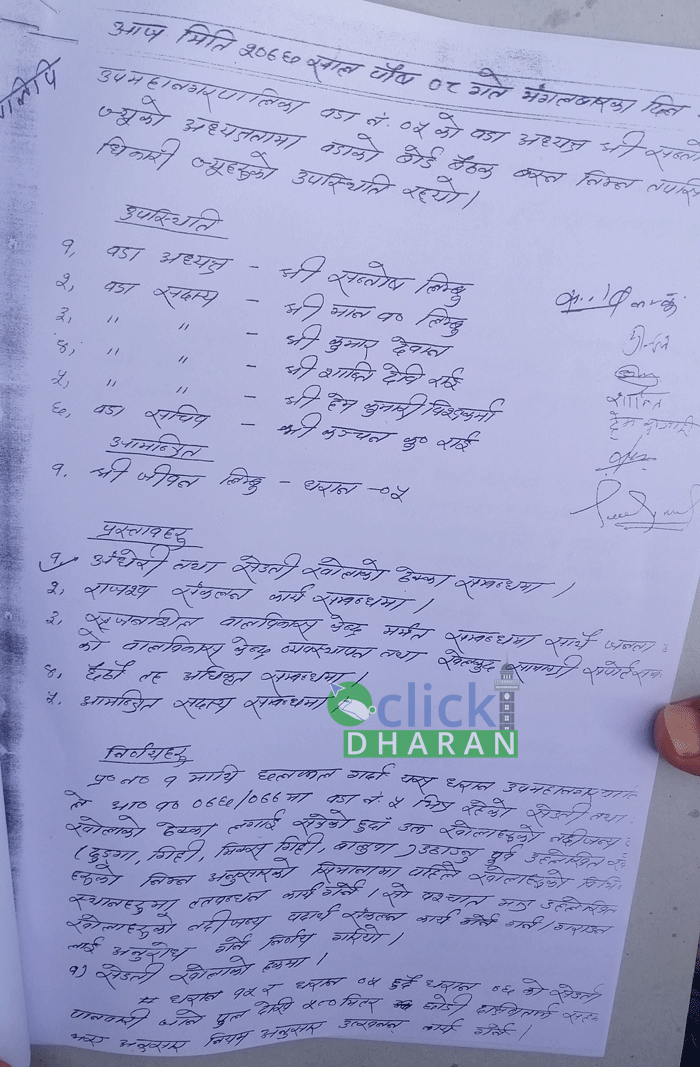 आज मिति २०७६ साल पौष ०८ गते मंगलबारका दिन
उपमहानगरपालिका वडा नं. ०५ को वडा अध्यक्ष श्री सन्तो
ज्यूको अध्यक्षतामा वडाको बोर्ड बैठक बस्न निम्न तपसि
धिकारी ज्यूहरुको उपस्थिति रह्यो।
उपस्थिति
१, वडा अध्यक्ष - श्री सन्तोष लिम्बु
२, वडा सदस्य - श्री मान ब० लिम्बु
३, " " - श्री कुमार देवान
४, " " - श्री शान्ति देवि राई
५, " " - श्री हेम कुमारी विश्वकर्मा
६, वडा सचिव - श्री कञ्चन कु० राई
शान्ति
हेम कुमारी
आमन्त्रित
१. श्री जीवन लिम्बु - धरान -०५
प्रस्तावहरु
१. अंधेरी तथा सेउती खोलाको ठेक्का सम्बन्धमा।
२. राजश्व संकलन कार्य सम्बन्धमा।
३. सृजनशिल बालविकास केन्द्र मर्मत सम्बन्धमा साथै जनता
को बालविकास केन्द्र व्यवस्थापन तथा खेलकुद सामाग्री
४. छैठौं तह अधिकृत सम्बन्धमा।
५. आमन्त्रित सदस्य सम्बन्धमा।
click
DHARAN
निर्णयहरु
प्र० न० १ माथि छलफल गर्दा यस धरान उपमहानगरपालि
ले आ० ब० मा वडा नं. ५ भित्र रहेको सेउती तथा
खोलाको ठेक्का लगाई सकेको हुदाँ उक्त खोलाहरुको नदीजन्य
(ढुङ्गा, गिट्टी, मिक्स गिट्टी, बालुवा) उठाउनु पूर्व उल्लेखित
हरुको निम्न अनुसारको सिमानामा पहिले खोलाहरुको
स्थानहरुमा तटबन्धन कार्य गर्ने। सो पश्चात मात्र उल्लेखित
खोलाहरुको नदीजन्य पदार्थ संकलन कार्य गर्ने गरी
लाई अनुरोध गर्ने निर्णय गरियो।
१) सेउती खोलाको हकमा।
# धरान १५ र धरान ०५ हुदै धरान ०६ को सेउती
पानबारी जाने पुल देखि ५०० मिटर छोडी दक्षिणतर्फ
अनुसार नियम अनुसार उत्खनन कार्य गर्ने।